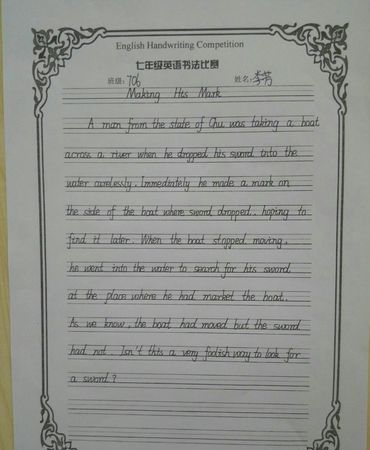 English Handwriting Competition
七年级英语书法比赛
班级: 706 姓名: 李芳
Making His Mark
A man from the state of Chu was taking a boat
across a river when he dropped his sword into the
water carelessly. Immediately he made a mark on
the side of the boat where sword dropped, hoping to
find it later. When the boat stopped moving,
he went into the water to search for his sword
at the place where he had market the boat.
As we know, the boat had moved but the sword
had not. Isn't this a very foolish way to look for
a sword?